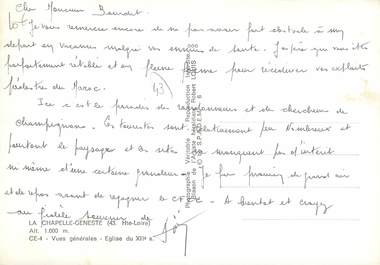 Cher Monsieur Baudet
Je vous remercie encore de ne pas avoir fait obstacle à mon
départ en vacances malgré vos ennuis de santé. J'espère que vous êtes
parfaitement rétabli et en pleine forme pour récidiver vos exploits
pédestres du Maroc.
(43)
Ici c'est le paradis des randonneurs et des chercheurs de
champignons. Les touristes sont relativement peu nombreux et
pourtant le paysage et les sites ne manquent pas d'intérêt
ni même d'une certaine grandeur. Je fais provision de grand air
et de repos avant de regagner le C.F.C. A bientôt et croyez
au fidèle souvenir de
LA CHAPELLE-GENESTE (43. Hte-Loire)
Alt. 1.000 m.
CE-4 - Vues générales - Eglise du XIIe s.
Photographie Véritable - Reproduction interdite
Robert LOUIS
S.P.A.D.E.M.